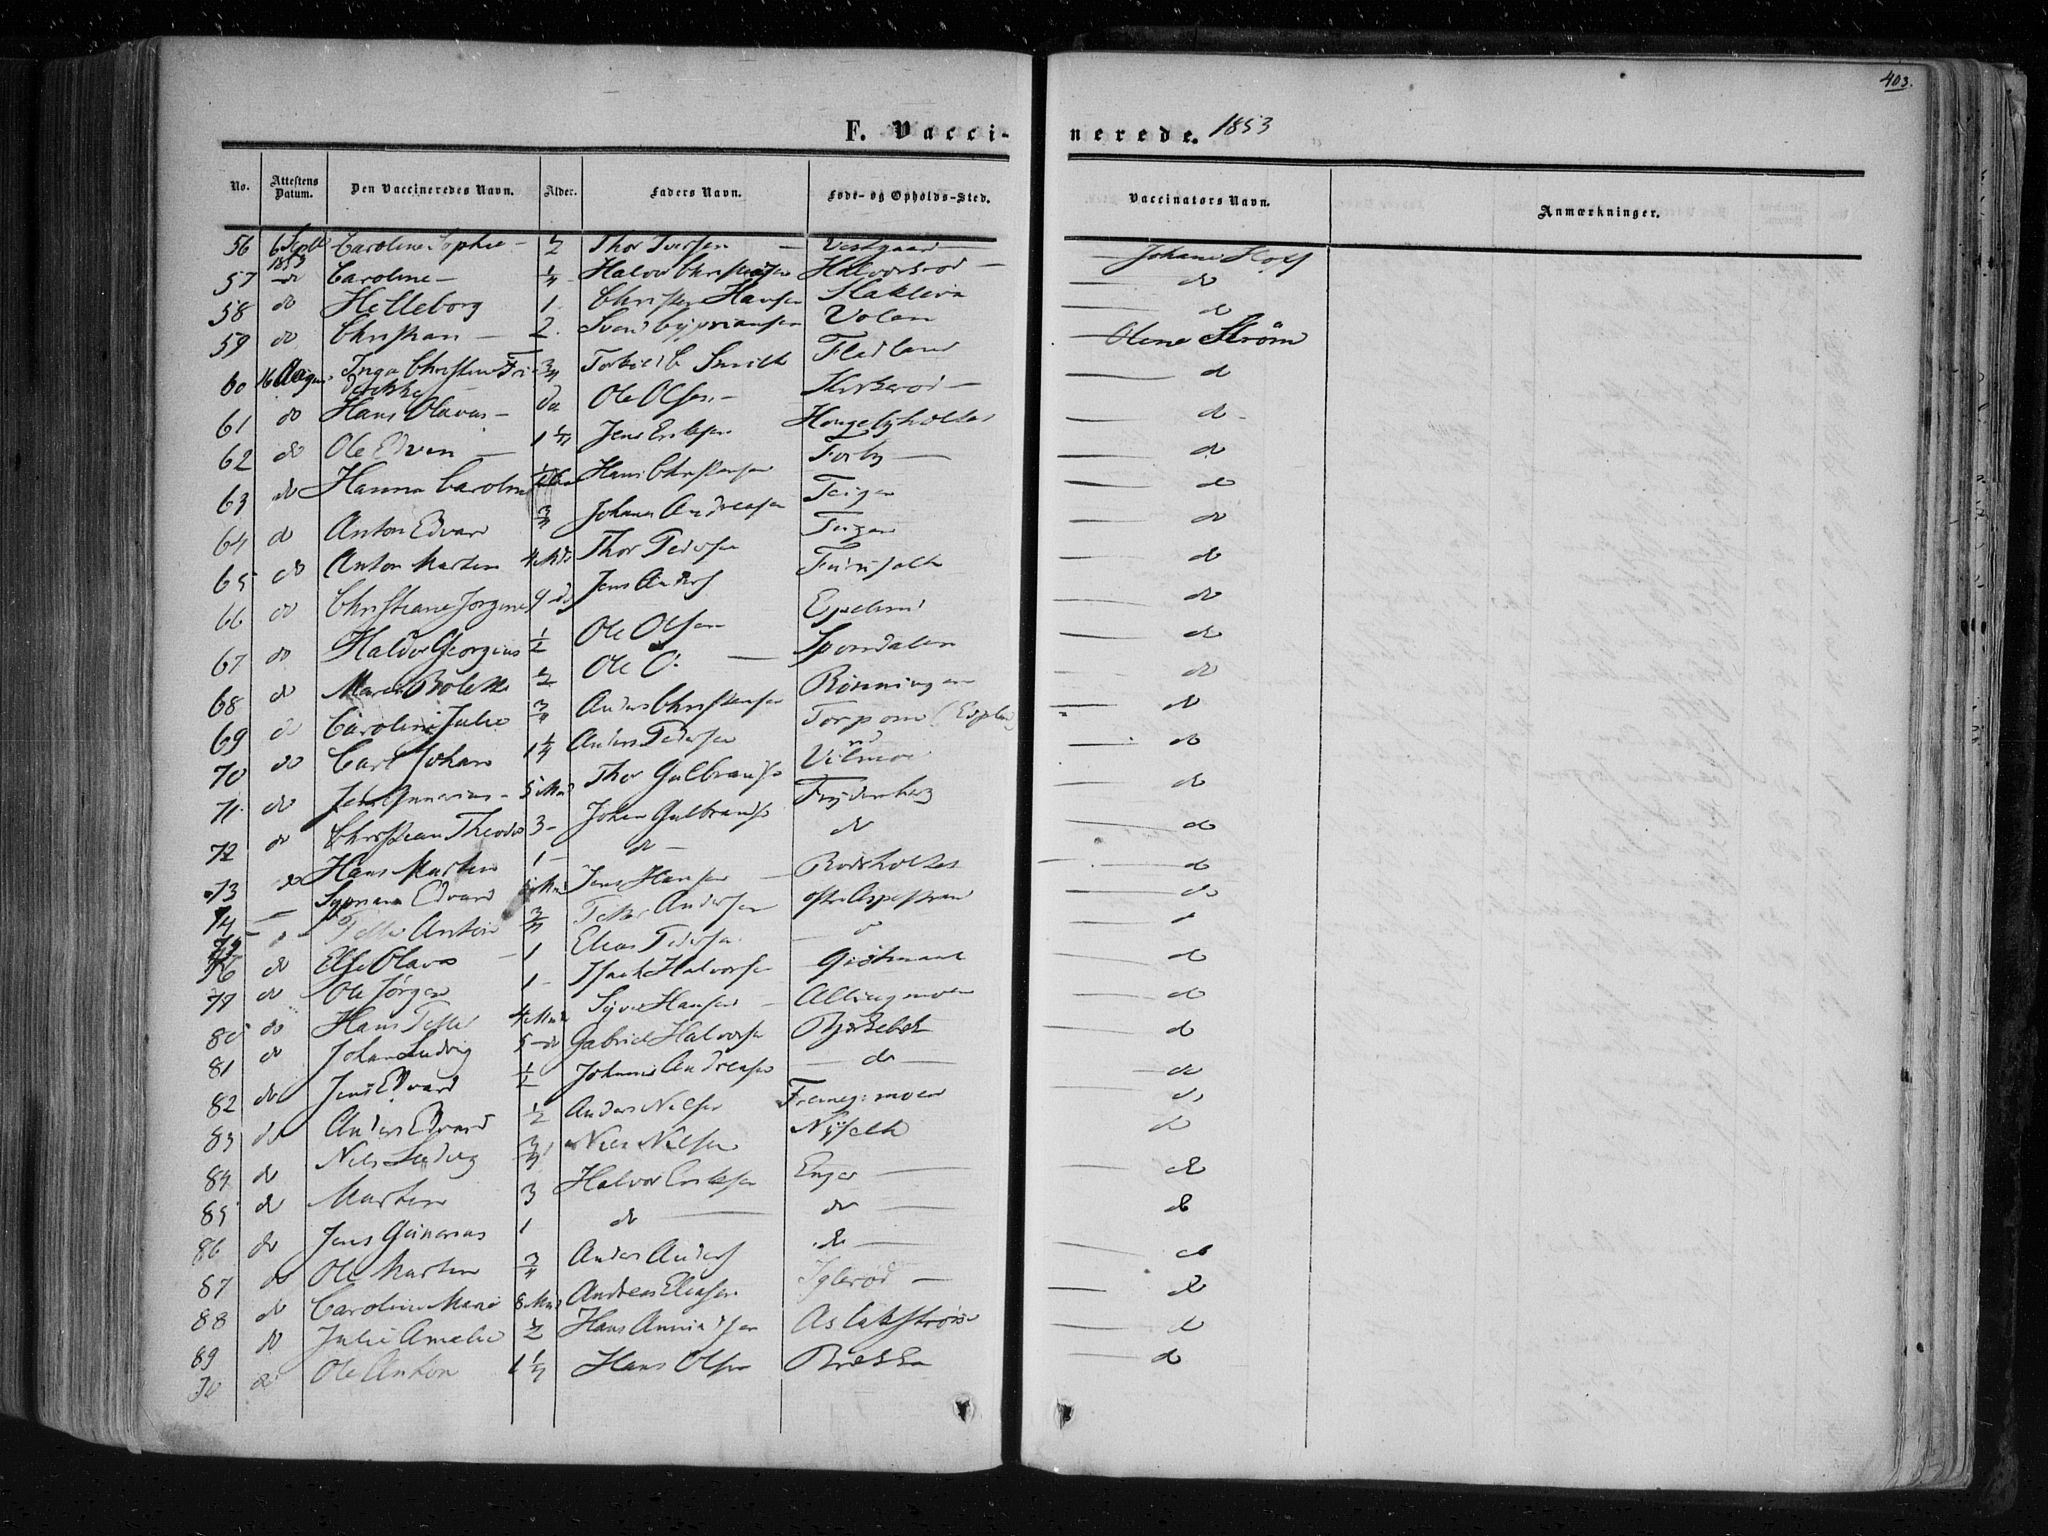 403.
F. Vacci- nerede. 1853
No. Attestens Datum. Den Vaccineredes Navn. Alder. Faders Navn. Føde- og Opholds-Sted. Vaccinators Navn. Anmærkninger.
56 6 Septbr 1853 Caroline Sophie - 1/2 Thor Iversen - Vestgaard - Johann Holt
57 do Caroline - 1/4 Halvor Christensen Halvorsrød - do
58 do Helleborg 1 Christen Hansen Slakleiva do
59 do Christian - 2. Svend Cyprianssen Volen Olene Strøm
60 16 August Inga Christine Fredrikke 3/4 Torkild C Smith Fladland d
61 do Hans Olavus - do Ole Olsen - Kirkerød - d
62 do Ole Edvin - 1 1/4 Jens Eriksen Haugebyholtet do
63 do Hanna Caroline Hans Christensen Torby - do
64 do Anton Edvard 3/4 Johannes Andreasen Teigen do
65 do Anton Martin 4 Mdr Thor Pedersen Teigen do
66 do Christiane Jørgine 9 do Jens Anders Furusæth do
67 do Halvor Georgius 1/2 Ole Olsen Espelund do
68 do Maren Bolette 1/2 Ole O. - Spondalen do
69 do Caroline Julie 3/4 Anders Christensen Rønningen do
70 do Carl Johan 1 1/4 Anders Pedersen Torpom do
71. do Jens Gunerius - 5 Mnd Thor Gulbrands. do
72 do Christian Theodor 3 - Johan Gulbrands. Frydenberg do
73 do Hans Martin 1 - do - do do
74 - Syprian Edvard Mnd Jens Hansen - Rødsholtet do
75 do Peter Anton 3/4 Peter Andersen do
76 do Else Olava - 1 Elias Pedersen do
77 do Ole Jørgen 1 - Isach Halvorsen do
80 do Hans Peter 4 Mnd Syver Hansen - Allingmoen do
81 do Johan Ludvig 5 do Gabriel Halvorsen Bjerkebek do
82 do Jens Edvard 1/2 Johannes Andreasen - do - do
83 do Anders Edvard 1/2 Anders Nilsen do
84 do Nils Ludvig 3/4 Niels Nilsen Nysæth do
85 do Martin 3 Halvor Eriksen Enger - do
86 do Jens Gunerius 1 do - do - do
87 do Ole Martin 3/4 Anders Anders do - do
88 do Caroline Marie 8 Mnd Andreas Eliasen Iglerød - do
89 do Julie Amalie 1/2 Hans Amundsen Aslakstrøm do
90 do Ole Anton 1 1/4 Hans Olsen Brekke do